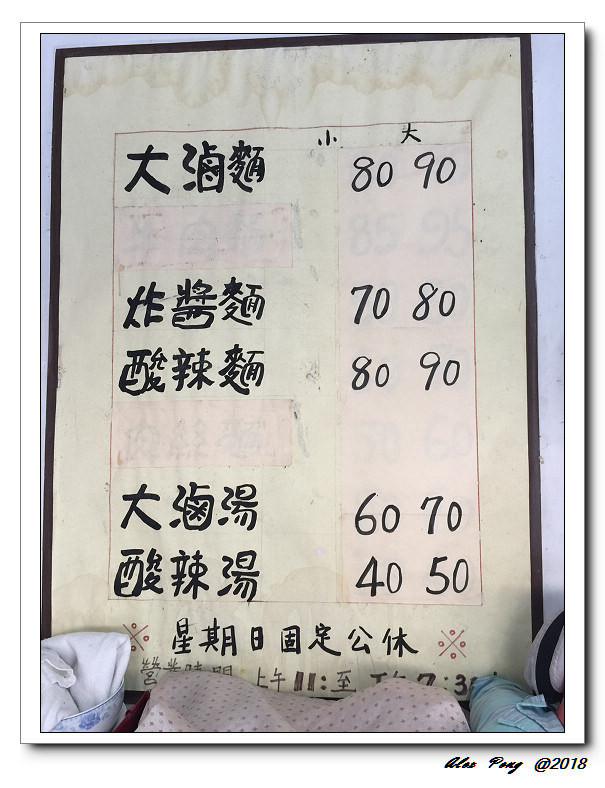 小 大
大滷麵 80 90
炸醬麵 70 80
酸辣麵 80 90
大滷湯 60 70
酸辣湯 40 50
※ 星期日固定公休 ※
營業時間 上午11:至下午7:30
Alex Pong @2018